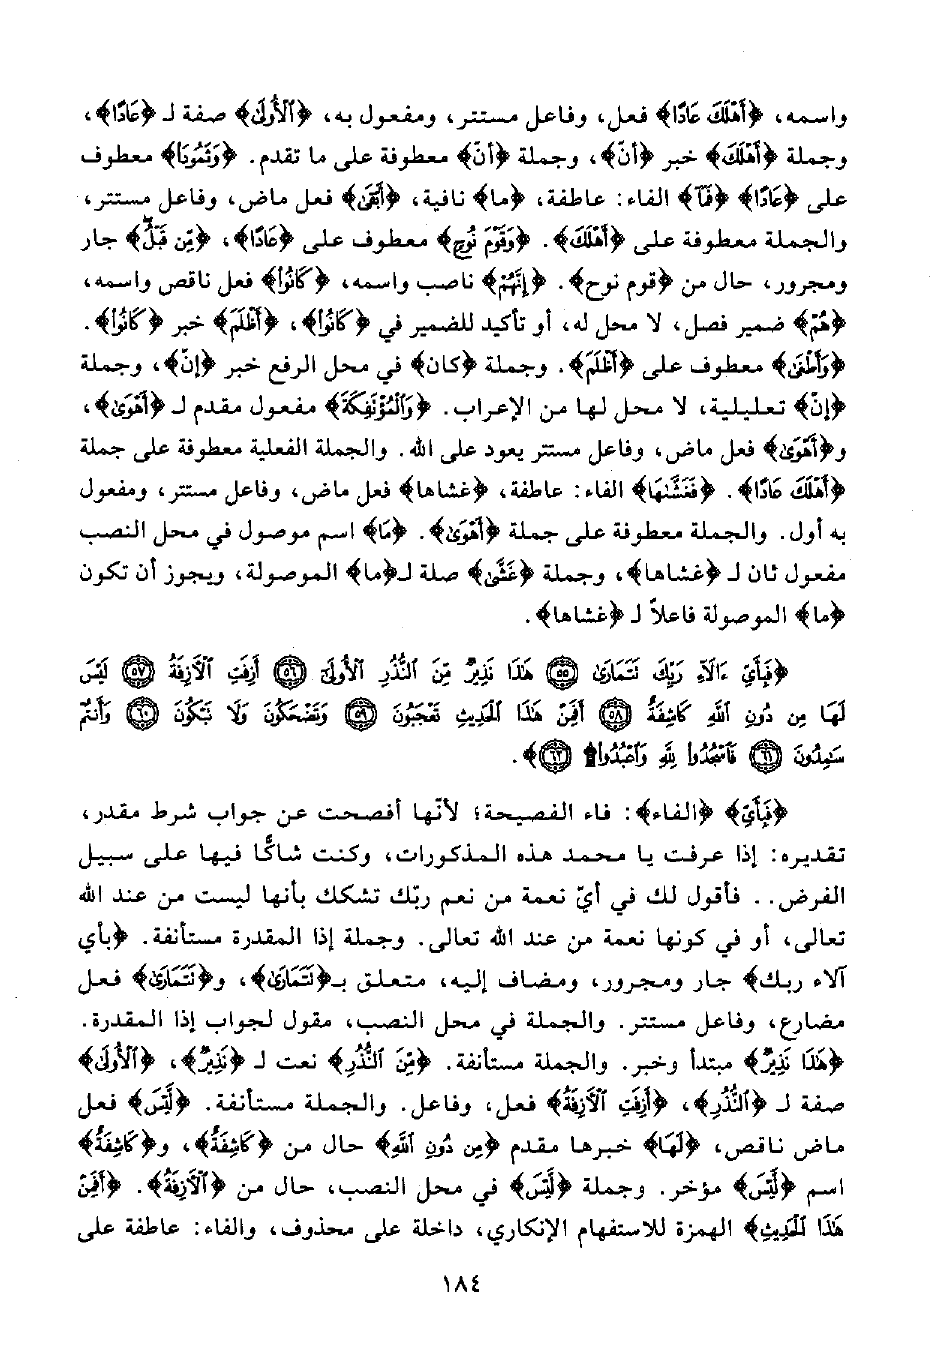 واسمه، ﴿أَهْلَكَ عَادًا﴾ فعل، وفاعل مستتر، ومفعول به، ﴿ٱلْأُولَىٰ﴾ صفة لـ ﴿عَادًا﴾،
وجملة ﴿أَهْلَكَ﴾ خبر ﴿أنّ﴾، وجملة ﴿أنّ﴾ معطوفة على ما تقدم. ﴿وَثَمُودَا﴾ معطوف
على ﴿عَادًا﴾ ﴿فَمَآ﴾ الفاء: عاطفة، ﴿ما﴾ نافية، ﴿أَبْقَىٰ﴾ فعل ماض، وفاعل مستتر،
والجملة معطوفة على ﴿أَهْلَكَ﴾. ﴿وَقَوْمَ نُوحٍ﴾ معطوف على ﴿عَادًا﴾، ﴿مِّن قَبْلُ﴾ جار
ومجرور، حال من ﴿قوم نوح﴾. ﴿إِنَّهُمْ﴾ ناصب واسمه، ﴿كَانُوا۟﴾ فعل ناقص واسمه،
﴿هُمْ﴾ ضمير فصل، لا محل له، أو تأكيد للضمير في ﴿كَانُوا۟﴾، ﴿أَظْلَمَ﴾ خبر ﴿كَانُوا۟﴾.
﴿وَأَطْغَىٰ﴾ معطوف على ﴿أَظْلَمَ﴾. وجملة ﴿كان﴾ في محل الرفع خبر ﴿إنّ﴾، وجملة
﴿إنّ﴾ تعليلية، لا محل لها من الإعراب. ﴿وَٱلْمُؤْتَفِكَةَ﴾ مفعول مقدم لـ ﴿أَهْوَىٰ﴾،
و﴿أَهْوَىٰ﴾ فعل ماض، وفاعل مستتر يعود على الله. والجملة الفعلية معطوفة على جملة
﴿أَهْلَكَ عَادًا﴾. ﴿فَغَشَّىٰهَا﴾ الفاء: عاطفة، ﴿غشاها﴾ فعل ماض، وفاعل مستتر، ومفعول
به أول. والجملة معطوفة على جملة ﴿أَهْوَىٰ﴾. ﴿مَا﴾ اسم موصول في محل النصب
مفعول ثان لـ ﴿غشاها﴾، وجملة ﴿غَشَّىٰ﴾ صلة لـ﴿ما﴾ الموصولة، ويجوز أن تكون
﴿ما﴾ الموصولة فاعلاً لـ ﴿غشاها﴾.
﴿فَبِأَيِّ ءَالَآءِ رَبِّكَ تَتَمَارَىٰ ٥٥ هَٰذَا نَذِيرٌ مِّنَ ٱلنُّذُرِ ٱلْأُولَىٰٓ ٥٦ أَزِفَتِ ٱلْأَزِفَةُ ٥٧ لَيْسَ
لَهَا مِن دُونِ ٱللَّهِ كَاشِفَةٌ ٥٨ أَفَمِنْ هَٰذَا ٱلْحَدِيثِ تَعْجَبُونَ ٥٩ وَتَضْحَكُونَ وَلَا تَبْكُونَ ٦٠ وَأَنتُمْ
سَٰمِدُونَ ٦١ فَٱسْجُدُوا۟ لِلَّهِ وَٱعْبُدُوا۟ ۩ ٦٢﴾.
﴿فَبِأَيِّ﴾ ﴿الفاء﴾: فاء الفصيحة؛ لأنّها أفصحت عن جواب شرط مقدر،
تقديره: إذا عرفت يا محمد هذه المذكورات، وكنت شاكًّا فيها على سبيل
الفرض.. فأقول لك في أيّ نعمة من نعم ربّك تشكك بأنها ليست من عند الله
تعالى، أو في كونها نعمة من عند الله تعالى. وجملة إذا المقدرة مستأنفة. ﴿بأي
آلاء ربك﴾ جار ومجرور، ومضاف إليه، متعلق بـ﴿تَتَمَارَىٰ﴾، و﴿تَتَمَارَىٰ﴾ فعل
مضارع، وفاعل مستتر. والجملة في محل النصب، مقول لجواب إذا المقدرة.
﴿هَٰذَا نَذِيرٌ﴾ مبتدأ وخبر. والجملة مستأنفة. ﴿مِّنَ ٱلنُّذُرِ﴾ نعت لـ ﴿نَذِيرٌ﴾، ﴿ٱلْأُولَىٰ﴾
صفة لـ ﴿ٱلنُّذُرِ﴾، ﴿أَزِفَتِ ٱلْأَزِفَةُ﴾ فعل، وفاعل. والجملة مستأنفة. ﴿لَيْسَ﴾ فعل
ماض ناقص، ﴿لَهَا﴾ خبرها مقدم ﴿مِن دُونِ ٱللَّهِ﴾ حال من ﴿كَاشِفَةٌ﴾، و﴿كَاشِفَةٌ﴾
اسم ﴿لَيْسَ﴾ مؤخر. وجملة ﴿لَيْسَ﴾ في محل النصب، حال من ﴿ٱلْأَزِفَةُ﴾. ﴿أَفَمِنْ
هَٰذَا ٱلْحَدِيثِ﴾ الهمزة للاستفهام الإنكاري، داخلة على محذوف، والفاء: عاطفة على
١٨٤